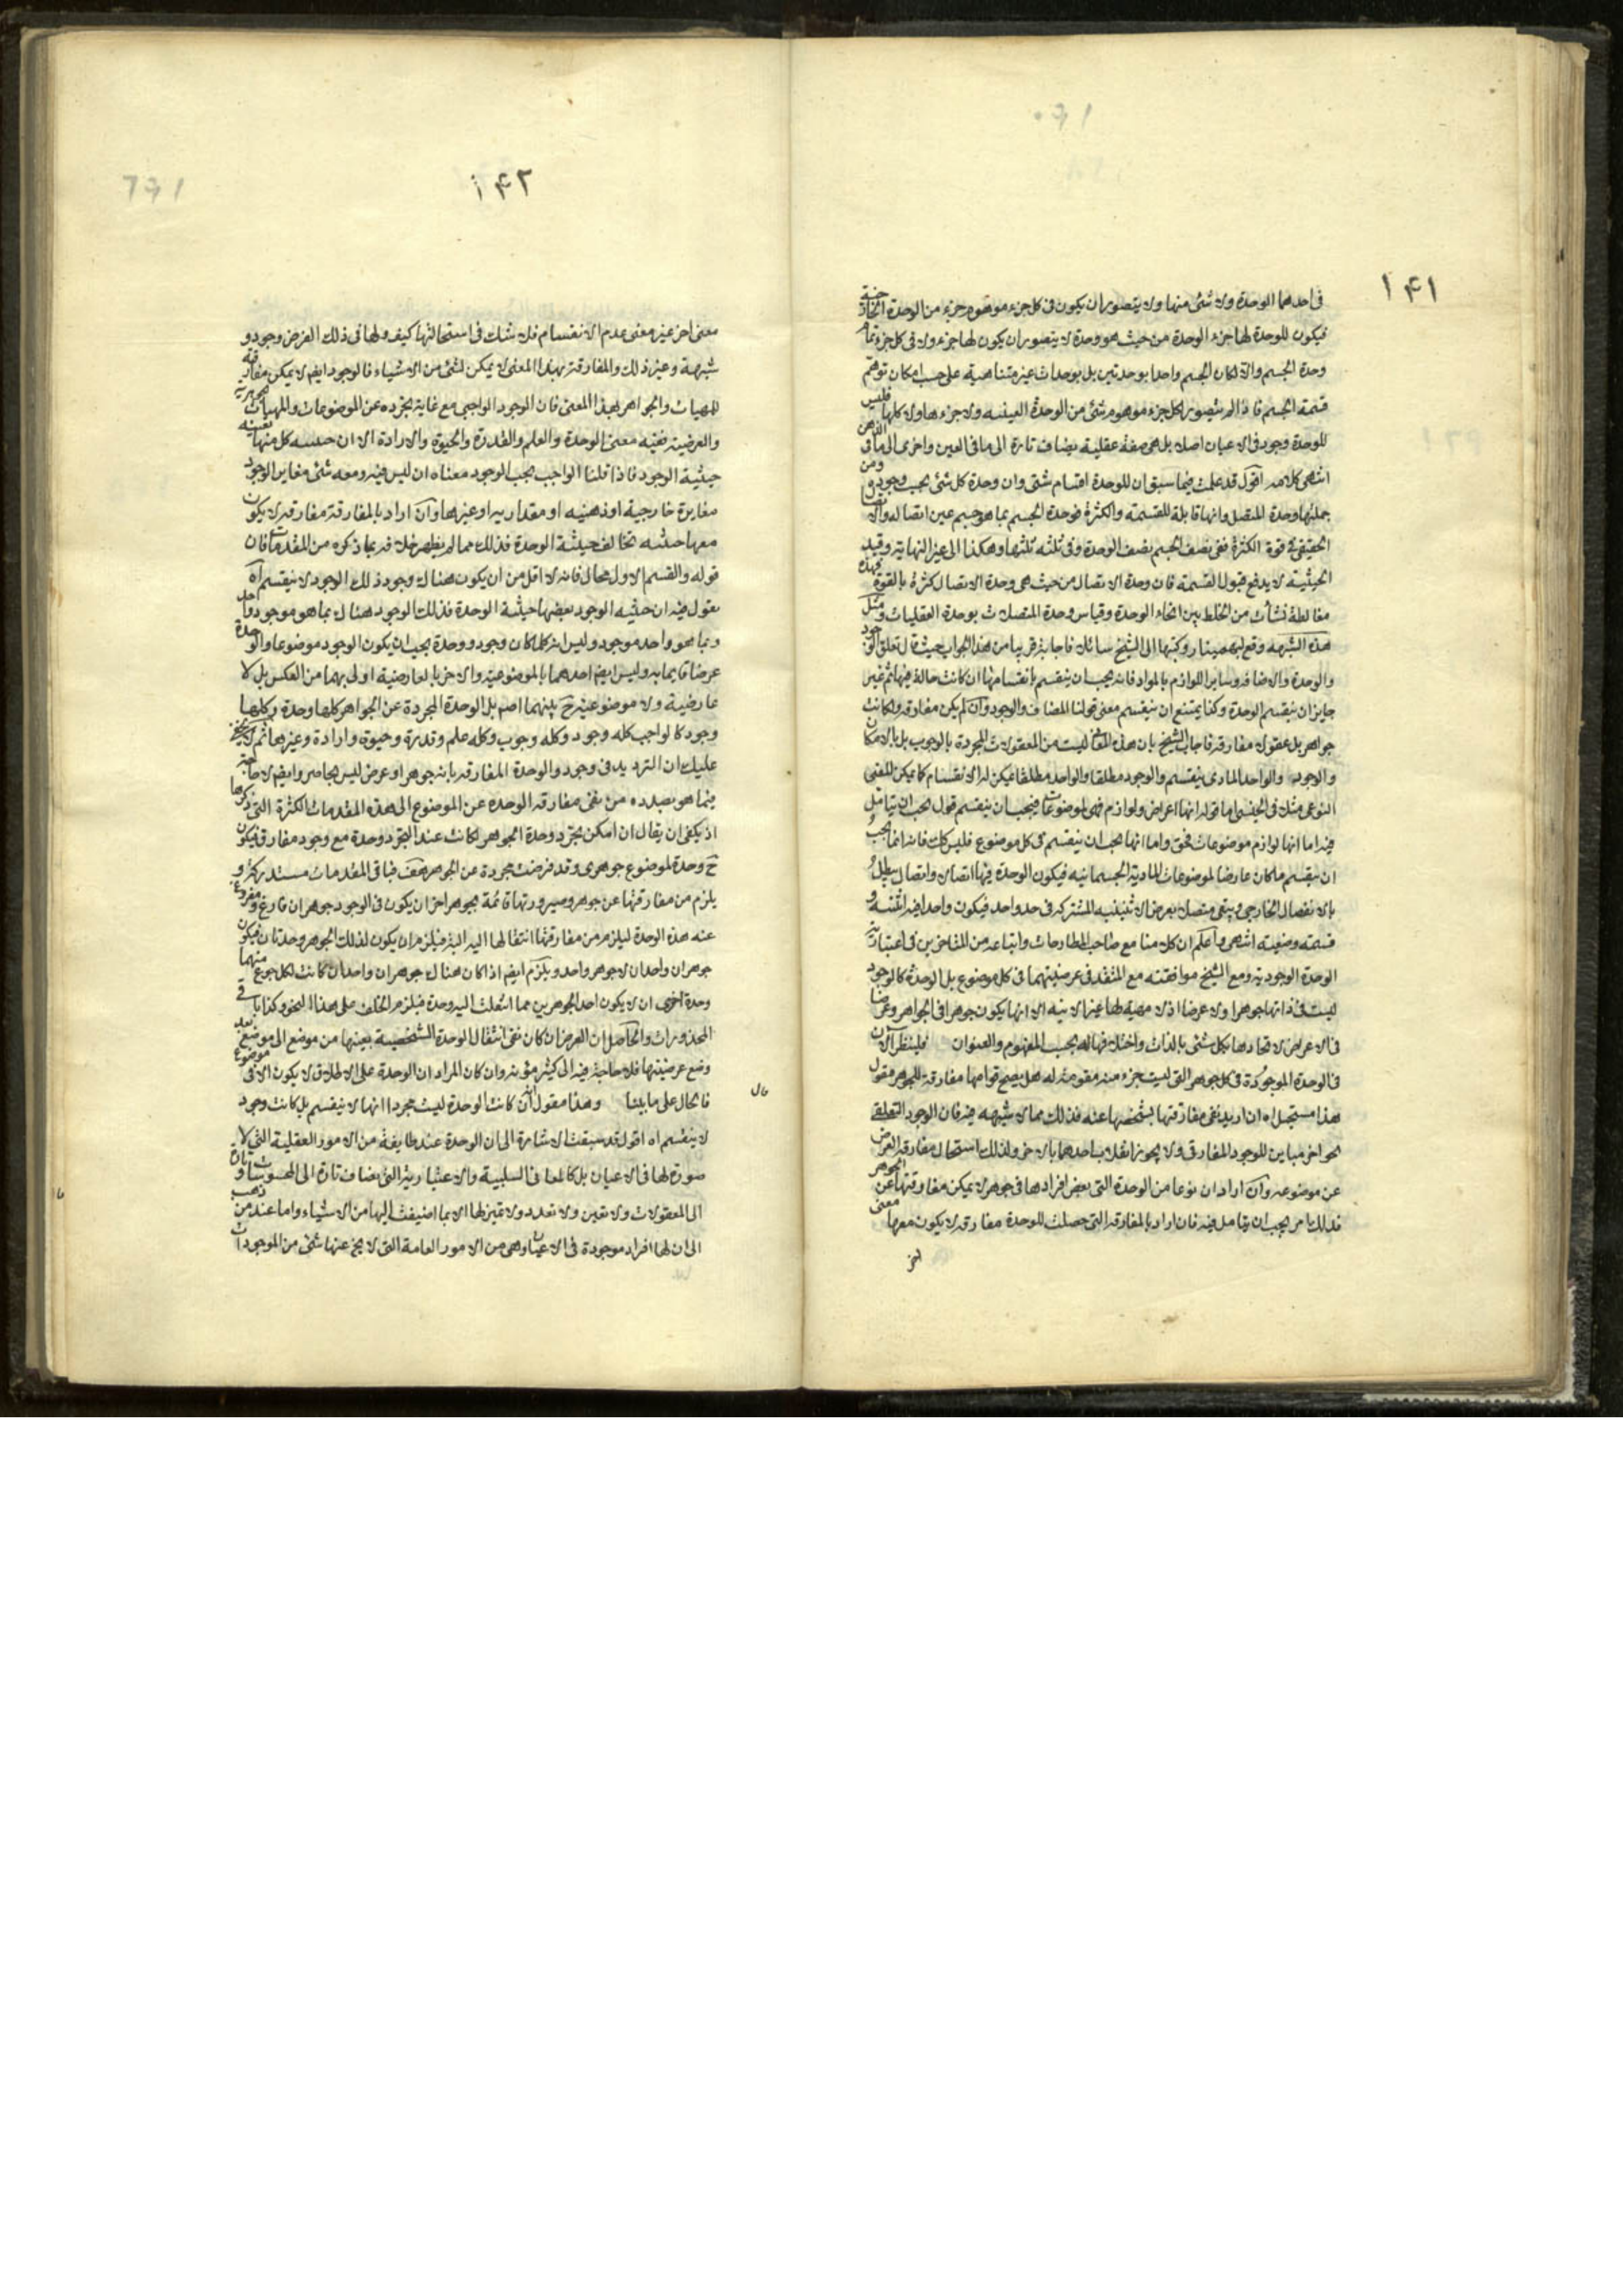 ١٤١
فى احدهما الوحدة ولا شئ منها ولا يتصور ان يكون فى كل جزء موهوم جزء من الوحدة الخارجية
فيكون للوحدة لها جزء الوحدة من حيث هو وحدة لا يتصور ان يكون لها جزء ولا فى كل جزء تمام
وحدة الجسم والا لكان الجسم واحدا بوحدتين بل بوحدات غير متناهية على حسب امكان توهم
قسمة الجسم فاذا لم يتصور لكل جزء موهوم شئ من الوحدة العينية ولا جزءها ولا كلها فليس
للوحدة وجود فى الاعيان اصلا بل هى صفة عقلية يضاف تارة الى ما فى العين واخرى الى ما فى الذهن
انتهى كلامه اقول قد علمت فيما سبق ان للوحدة اقسام شتى وان وحدة كل شئ بحسب وجوده ومن
جملتها وحدة المتصل وانها قابلة للقسمة والكثرة فوحدة الجسم بما هو جسم عين اتصاله
الحقيقى قوة الكثرة ففى نصف الجسم نصف الوحدة وفى ثلثه ثلثها وهكذا الى غير النهاية وقيد
الحيثية لا يدفع قبول القسمة فان وحدة الاتصال من حيث هى وحدة الاتصال كثرة بالقوة فهذه
مغالطة نشأت من الخلط بين انحاء الوحدة وقياس وحدة المتصلات بوحدة العقليات ومثل
هذه الشبهه وقع لبهمنيار وكتبها الى الشيخ سائلا فاجابه قريبا من هذا الجواب حيث قال تعلق الوجود
والوحدة والاضافه وساير اللوازم بالمواد فانه يجب ان ينقسم بانقسامها ان كانت حالة فيها ثم غير
جايز ان ينقسم الوحدة وكذا يمتنع ان ينقسم معنى قولنا المضاف والوجود وان لم يكن مفارقه ولكانت
جواهر بل عقولا مفارقه فاجاب الشيخ بان هذه المعانى ليست من المعقولات المجردة بالوجوب بل بالامكان
والوجود والواحد المادى ينقسم والوجود مطلقا والواحد مطلقا فيمكن له الانقسام كما يمكن للمعنى
النوعى مثلا فى الجنسى اما قوله انها اعراض ولوازم فهى لموضوعات فيجب ان ينقسم قول يجب ان يتامل
فيه اما انها لوازم موضوعات فحق واما انها يجب ان ينقسم فى كل موضوع فليس كك فانه انما يجب
ان ينقسم ما كان عارضا لموضوعات المادية الجسمانيه فيكون الوحدة فيها اتصالا واتصال يبطل
بالانفصال الخارجى ويبقى متصلا بعرض الاثنينيه المشتركه فى حد واحد فيكون واحدا فيه اثنينيه و
قسمته وضعيته انتهى واعلم ان كلامنا مع صاحب المطارحات واتباعه من المتاخرين فى اعتبارية
الوحدة الوجودية ومع الشيخ موافقته مع المتقدم فى عرضيتهما فى كل موضوع بل الوحدة كالوجود
ليست فى ذاتها جوهرا ولا عرضا اذ لا مهية لها غير الانيه الا انها يكون جوهرا فى الجواهر وعرضا
فى الاعراض لاتحادها بكل شئ بالذات واختلافها له بحسب المفهوم والعنوان فلينظر الان
فى الوحدة الموجودة فى كل جوهر التى ليست جزء منه مقومة له هل يصح قوامها مفارقة للجوهر مقول
هذا مستحيل اه ان اريد نفى مفارقتها بشخصها عنه فذلك مما لا شبهه فيه فان الوجود المتعلق
نحو اخر مباين للوجود المفارقى ولا يجوز انقلاب احدهما بالاخر ولذلك استحال مفارقة العرض
عن موضوعه وان اراد ان نوعا من الوحدة التى بعض افرادها فى جوهر لا يمكن مفارقتها عن الجوهر
فذلك امر يجب ان يتامل فيه فان اراد بالمفارقه التى حصلت للوحدة مفارقه لا يكون معها معنى
اخر
١٤٢
معنى اخر غير معنى عدم الانقسام فلا شك فى استحالتها كيف ولها فى ذلك الفرض وجود و
شبهة وغير ذلك والمفارقة بهذا المعنى لا يمكن لشئ من الاشياء فالوجود ايضم لا يمكن مفارقة
للمهيات والجواهر بهذا المعنى فان الوجود الواجبى مع غاية تجرده عن الموضوعات والمهيات الجوهرية
والعرضية ففيه معنى الوحدة والعلم والقدرة والحيوة والارادة الا ان حيثية كل منها بعينه
حيثية الوجود فاذا قلنا الواجب بحسب الوجود معناه ان ليس فيه ومعه شئ مغاير الوجود
مغايرة خارجية او ذهنيه او مقداريه او غيرها وان اراد بالمفارقة مفارقه لا يكون
معها حيثيه تخالف حيثية الوحدة فذلك مما لم يظهر خلافه بما ذكره من المقدمات فان
قوله والقسم الاول محال فانه لا اقل من ان يكون هناك وجود ذلك الوجود لا ينقسم اه
يقول فيه ان حيثيه الوجود بعضها حيثية الوحدة فذلك الوجود هناك بما هو موجود واحد
وبما هو واحد موجود وليس انه كلما كان وجود ووحدة يجب ان يكون الوجود موضوعا والوحدة
عرضا قايما به وليس ايضم احدهما بالموضوعيه والاخر بالعارضية اولى بهما من العكس بل لا
عارضية ولا موضوعيه ح بينهما اصلا بل الوحدة المجردة عن الجواهر كلها وحدة وكلها
وجود كالواجب كله وجود وكله وجوب وكله علم وقدرة وحيوة وارادة وغيرها ثم لا يخفى
عليك ان الترديد فى وجود والوحدة المفارقه بانه جوهر او عرض ليس بحاصر وايضم لا حاجة
فيما هو بصدده من نفى مفارقه الوحدة عن الموضوع الى هذه المقدمات الكثرة التى ذكرها
اذ يكفى ان يقال ان امكن تجرد وحدة الجوهر لكانت عند التجرد وحدة مع وجود مفارق فيكون
ح وحدة لموضوع جوهرى وقد فرضت مجردة عن الجوهر هف فباقى المقدمات مستدركة و
يلزم من مفارقتها عن جوهر وصيرورتها قائمة بجوهر اخر ان يكون فى الوجود جوهران فارغ ومفروغ
عنه هذه الوحدة ليلزم من مفارقتها انتقالها اليه البتة فيلزم ان يكون لذلك الجوهر وحدتان فيكون
جوهران واحدان لا جوهر واحد ويلزم ايضم اذا كان هناك جوهران واحدان كانت لكل جوهر منهما
وحدة اخرى ان لا يكون احد الجوهرين مما انتقلت اليه وحدة فيلزم الخلف على هذا النحو وكذا باقى
المحذورات والحاصل ان الغرض ان كان نفى انتقال الوحدة الشخصية بعينها من موضع الى موضع بعد
وضع عرضيتها فلا حاجة فيه الى كثير مؤنة وان كان المراد ان الوحدة على الاطلاق لا يكون الا فى موضوع
فالحال على ما بينا وهذا مقول ان كانت الوحدة ليست مجردا انها لا ينقسم بل كانت وجود
لا ينقسم اه اقول قد سبقت الاشارة الى ان الوحدة عند طايفة من الامور العقلية التى لا
صورة لها فى الاعيان بل كالمعانى السلبية والاعتبارية التى يضاف تارة الى المحسوسات وتارة
الى المعقولات ولا تعين ولا تعدد ولا تميز لها الا بما اضيفت اليها من الاشياء واما عند من ذهب
الى ان لها افراد موجودة فى الاعيان وهى من الامور العامة التى لا يخ عنها شئ من الموجودات